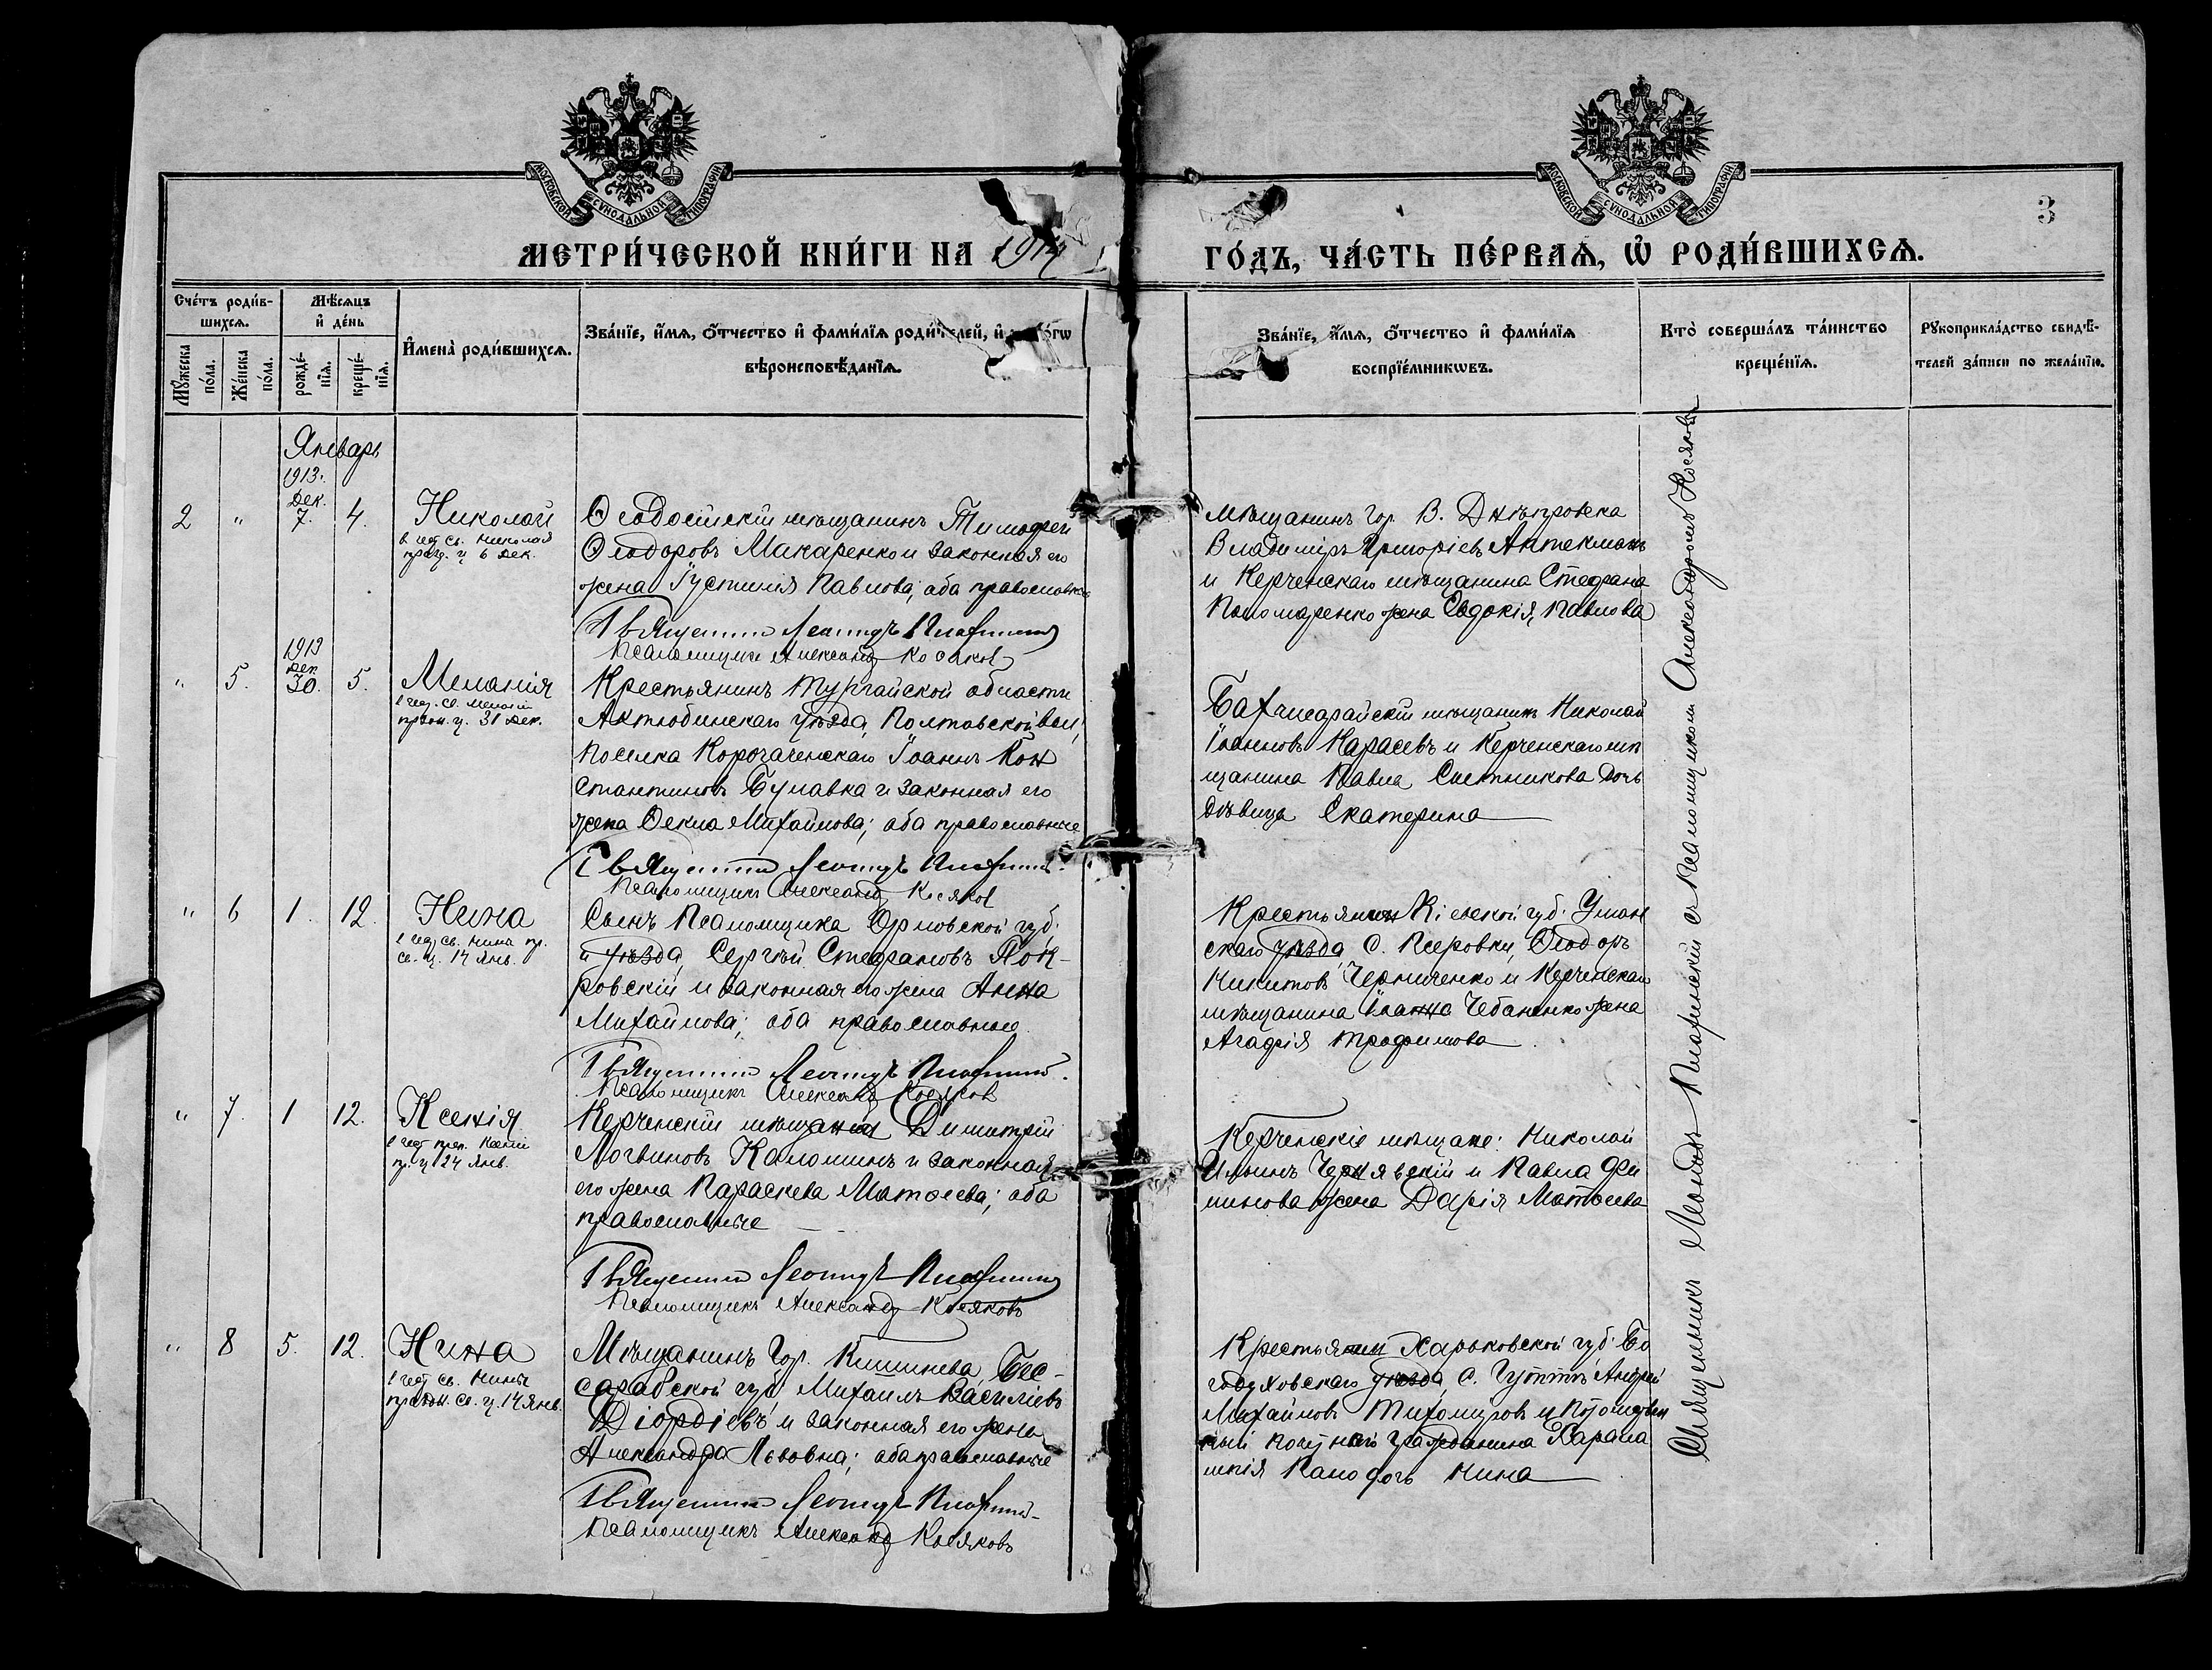 МОСКОВСКОЙ СѴНОДАЛЬНОЙ ТИПОГРАФІИ
МОСКОВСКОЙ СѴНОДАЛЬНОЙ ТИПОГРАФІИ
3
МЕТРИ́ЧЕСКОЙ КНИ́ГИ НА 1914 ГО́ДЪ, ЧА́СТЬ ПЕ́РВАѦ, Ѡ҆ РОДИ́ВШИХСѦ.
Сче́тъ роди́в-
шихсѧ.
Мꙋжеска по́ла.
Же́нска по́ла.
Мѣ́сѧцъ
и҆ де́нь
рожде́-
нїѧ.
креще́-
нїѧ.
И҆мена̀ роди́вшихсѧ.
Зва́нїе, и҆́мѧ, ѻ҆́тчество и҆ фами́лїѧ роди́телей, и҆
вѣроисповѣ́данїѧ.
Зва́нїе, и҆́мѧ, ѻ҆́тчество и҆ фами́лїѧ
воспрїе́мникѡвъ.
Кто̀ соверша́лъ та́инство
креще́нїѧ.
Рꙋкоприкла́дство свидѣ́-
телей за́писи по жела́нїю.
Январь
1913 г.
Дек.
2 " 7. 4. Николай
в чес. св. Николая
празд. ц 6 Дек.
Ѳеодосійскій мѣщанинъ Тимофей
Ѳеодоровъ Макаренко и законная его
жена Іустинія Павлова; оба православные
Священник Леонидъ
Псаломщикъ Александр Косяков
мѣщанинъ гор. В. Днѣпровска
Владиміръ Григоріевъ Антекманъ
и Керченскаго мѣщанина Стефана
Пономаренко жена Евдокія Павлова
1913
Дек.
" 5. 30. 5. Меланія
в чес. св. Мелании
празн. ц. 31 Дек.
Крестьянинъ Тургайской области
Актюбинскаго уѣзда, Полтавской вол.,
поселка Корочаченскаго Іоаннъ Кон
стантиновъ Булавка и законная его
жена Ѳекла Михайлова; оба православные
Священник Леонидъ
Псаломщикъ Александр Косяков
Бахчисарайскій мѣщанинъ Николай
Іоанновъ Карасевъ и Керченскаго мѣ
щанина Павла Сметникова дочь
дѣвица Екатерина
" 6 1. 12. Нина
в чес св. Нина пр.
св. ц. 14 Янв.
Сынъ Псаломщика Орловской губ.
и уѣзда, Сергѣй Стефановъ Пок-
ровскій и законная его жена Анна
Михайлова; оба православные
Священник Леонидъ
Псаломщикъ Александр Косяков
Крестьянинъ Кіевской губ. Уман
скаго уѣзда, с. Псеровки, Ѳеодоръ
Никитовъ Черниченко и Керченскаго
мѣщанина Іоанна Чебаненко жена
Агафія Трофимова
" 7. 1 12. Ксенія
в чес преп. Ксении
пр. ц 24 Янв.
Керченскій мѣщанинъ Димитрій
Логвиновъ Калошинъ и законная
его жена Параскева Матѳеева; оба
православные
Священник Леонидъ
Псаломщикъ Александр Косяковъ
Керченскіе мѣщане: Николай
Ильинъ Чернявскій и Павла Фи
линова жена Дарія Матѳеева
" 8 5. 12. Нина
в чес св. Нины
празн. св. ц. 14 Янв.
Мѣщанинъ гор. Кишинева, Бес-
сарабской губ. Михаилъ Василіевъ
Діордіевъ и законная его жена
Александра Львовна; оба православные
Священник Леонидъ
Псаломщикъ Александр Косяковъ
Крестьянин Харьковской губ. Бо
годуховскаго уѣзда, с. Гутты, Андрей
Михайловъ Тихомировъ и Потомствен
ный почетнаго гражданина Харала
мпія Капо дочь Нина
Священникъ Леонидъ съ псаломщикомъ Александромъ Косяковымъ